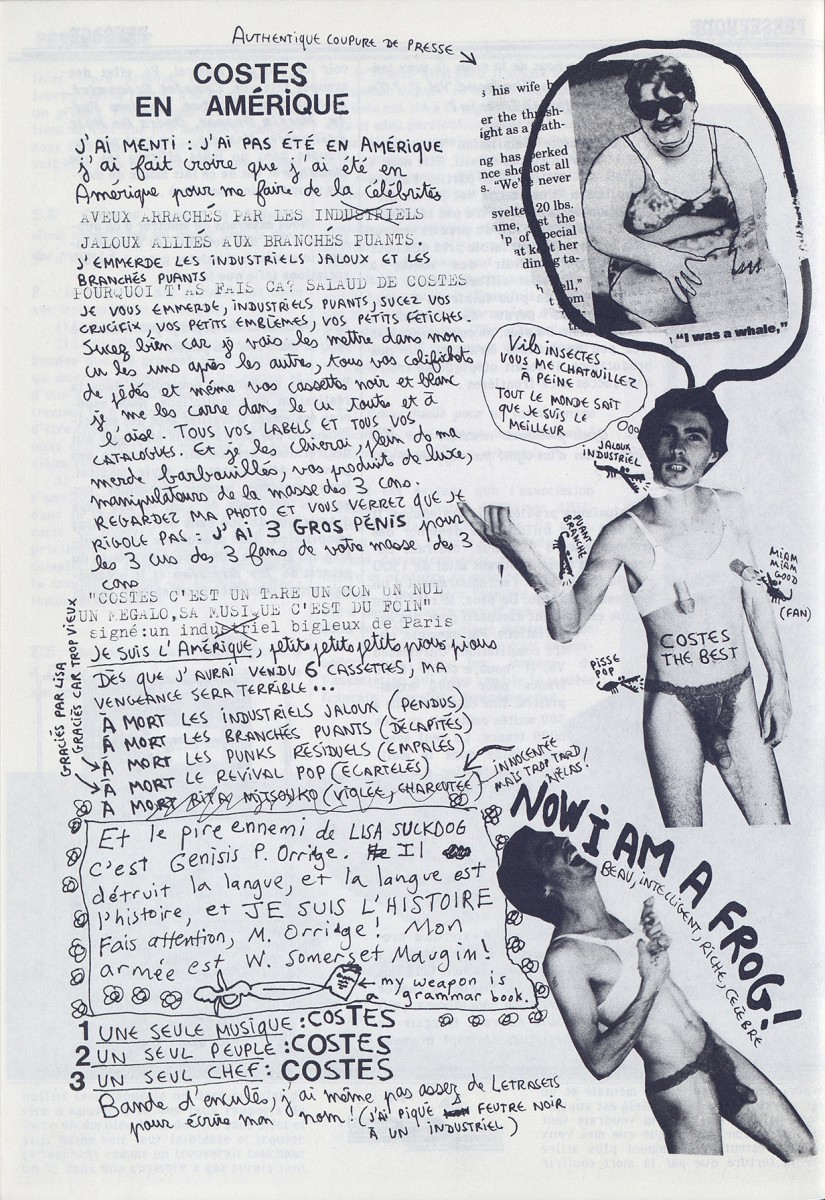 AUTHENTIQUE COUPURE DE PRESSE
COSTES
EN AMÉRIQUE
J'AI MENTI : J'AI PAS ÉTÉ EN AMÉRIQUE
j'ai fait croire que j'ai été en
Amérique pour me faire de la célébrité
AVEUX ARRACHÉS PAR LES INDUSTRIELS
JALOUX ALLIÉS AUX BRANCHÉS PUANTS.
J'EMMERDE LES INDUSTRIELS JALOUX ET LES
BRANCHÉS PUANTS
POURQUOI T'AS FAIS CA? SALAUD DE COSTES
JE VOUS EMMERDE, INDUSTRIELS PUANTS, SUCEZ VOS
CRUCIFIX, VOS PETITS EMBLÈMES, VOS PETITS FÉTICHES.
Sucez bien car je vais les mettre dans mon
cu les uns après les autre, tous vos colifichets
de pédés et même vos cassettes noir et blanc
je me les carre dans le cu toute et à
l'aise. TOUS VOS LABELS ET TOUS VOS
CATALOGUES. Et je les chierai, plein de ma
merde barbouillés, vos produits de luxe,
manipulateurs de la masse des 3 cons.
REGARDEZ MA PHOTO ET VOUS VERREZ QUE JE
RIGOLE PAS : J'AI 3 GROS PÉNIS pour
les 3 cus des 3 fans de votre masse des 3
cons
"COSTES C'EST UN TARE UN CON UN NUL
UN MEGALO, SA MUSIQUE C'EST DU FOIN"
signé:un industriel bigleux de Paris
JE SUIS L'AMÉRIQUE, petits petits petits pious pious
DÈS QUE J'AURAI VENDU 6 CASSETTES, MA
VENGEANCE SERA TERRIBLE...
À MORT LES INDUSTRIELS JALOUX (PENDUS)
À MORT LES BRANCHÉS PUANTS (DÉCAPITÉS)
À MORT LES PUNKS RÉSIDUELS (EMPALÉS)
À MORT LE REVIVAL POP (ÉCARTELÉS)
À MORT RITA MITSOUKO (VIOLÉE, CHARCUTÉE)
GRACIÉS PAR LISA
GRACIÉS CAR TROP VIEUX
INNOCENTÉE
MAIS TROP TARD!
HÉLAS!
Et le pire ennemi de LISA SUCKDOG
c'est Genisis P. Orridge. Il
détruit la langue, et la langue est
l'histoire, et JE SUIS L'HISTOIRE
Fais attention, M. Orridge! Mon
armée est W. Somerset Maugin!
my weapon is
a grammar book.
1 UNE SEULE MUSIQUE : COSTES
2 UN SEUL PEUPLE : COSTES
3 UN SEUL CHEF : COSTES
Bande d'enculés, j'ai même pas assez de LETRASETS
pour écrire mon nom! (J'AI PIQUÉ FEUTRE NOIR
À UN INDUSTRIEL)
, his wife
er the thresh-
ight as a
ng has perked
nce she lost all
s. "We never
svelte 20 lbs.
ame, the
of special
at kept her
dining ta-
"I was a whale,"
VILS INSECTES
VOUS ME CHATOUILLEZ
À PEINE
TOUT LE MONDE SAIT
QUE JE SUIS LE
MEILLEUR
JALOUX
INDUSTRIEL
PUANT
BRANCHÉ
MIAM
MIAM
GOOD
(FAN)
COSTES
THE BEST
PISSE
POP
NOW I AM A FROG!
BEAU, INTELLIGENT, RICHE, CÉLÈBRE